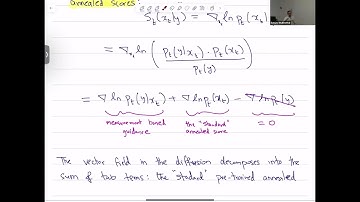 annealed scores: S_t(x_t|y) = ∇_{x_t} ln p_t(x_t
= ∇_{x_t} ln ( p_t(y|x_t) · p_t(x_t) / p_t(y) )
= ∇ ln p_t(y|x_t) + ∇ ln p_t(x_t) − ∇ ln p_t(y)
measurement based guidance the "standard" annealed score = 0
The vector field in the diffusion decomposes into the
sum of two terms: the "standard" pre-trained annealed